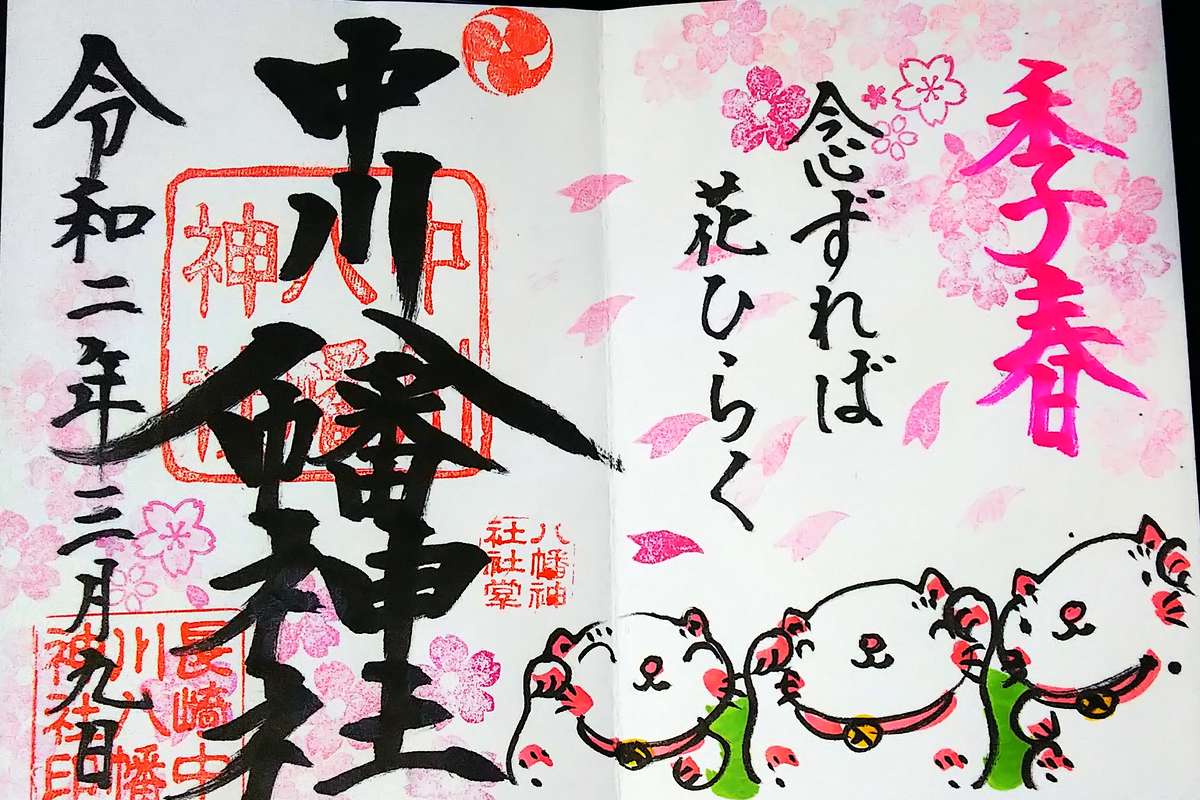 季春
念ずれば
花ひらく
中川八幡神社
令和二年三月九日
中川
八幡
神社
八幡神
社社堂
長崎中
川八幡
神社印